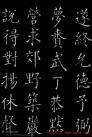 乞德予弼
夢賚武丁恭默
營求郊野築巖
說得對揚休聲